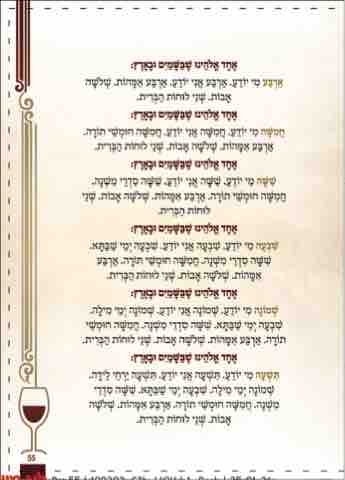 אֶחָד אֱלֹהֵינוּ שֶׁבַּשָּׁמַיִם וּבָאָרֶץ:
אַרְבַּע מִי יוֹדֵעַ. אַרְבַּע אֲנִי יוֹדֵעַ. אַרְבַּע אִמָּהוֹת. שְׁלֹשָׁה
אָבוֹת. שְׁנֵי לוּחוֹת הַבְּרִית.
אֶחָד אֱלֹהֵינוּ שֶׁבַּשָּׁמַיִם וּבָאָרֶץ:
חֲמִשָּׁה מִי יוֹדֵעַ. חֲמִשָּׁה אֲנִי יוֹדֵעַ. חֲמִשָּׁה חוּמְשֵׁי תוֹרָה.
אַרְבַּע אִמָּהוֹת. שְׁלֹשָׁה אָבוֹת. שְׁנֵי לוּחוֹת הַבְּרִית.
אֶחָד אֱלֹהֵינוּ שֶׁבַּשָּׁמַיִם וּבָאָרֶץ:
שִׁשָּׁה מִי יוֹדֵעַ. שִׁשָּׁה אֲנִי יוֹדֵעַ. שִׁשָּׁה סִדְרֵי מִשְׁנָה.
חֲמִשָּׁה חוּמְשֵׁי תוֹרָה. אַרְבַּע אִמָּהוֹת. שְׁלֹשָׁה אָבוֹת. שְׁנֵי
לוּחוֹת הַבְּרִית.
אֶחָד אֱלֹהֵינוּ שֶׁבַּשָּׁמַיִם וּבָאָרֶץ:
שִׁבְעָה מִי יוֹדֵעַ. שִׁבְעָה אֲנִי יוֹדֵעַ. שִׁבְעָה יְמֵי שַׁבַּתָּא.
שִׁשָּׁה סִדְרֵי מִשְׁנָה. חֲמִשָּׁה חוּמְשֵׁי תוֹרָה. אַרְבַּע
אִמָּהוֹת. שְׁלֹשָׁה אָבוֹת. שְׁנֵי לוּחוֹת הַבְּרִית.
אֶחָד אֱלֹהֵינוּ שֶׁבַּשָּׁמַיִם וּבָאָרֶץ:
שְׁמוֹנָה מִי יוֹדֵעַ. שְׁמוֹנָה אֲנִי יוֹדֵעַ. שְׁמוֹנָה יְמֵי מִילָה.
שִׁבְעָה יְמֵי שַׁבַּתָּא. שִׁשָּׁה סִדְרֵי מִשְׁנָה. חֲמִשָּׁה חוּמְשֵׁי
תוֹרָה. אַרְבַּע אִמָּהוֹת. שְׁלֹשָׁה אָבוֹת. שְׁנֵי לוּחוֹת הַבְּרִית.
אֶחָד אֱלֹהֵינוּ שֶׁבַּשָּׁמַיִם וּבָאָרֶץ:
תִּשְׁעָה מִי יוֹדֵעַ. תִּשְׁעָה אֲנִי יוֹדֵעַ. תִּשְׁעָה יַרְחֵי לֵידָה.
שְׁמוֹנָה יְמֵי מִילָה. שִׁבְעָה יְמֵי שַׁבַּתָּא. שִׁשָּׁה סִדְרֵי
מִשְׁנָה. חֲמִשָּׁה חוּמְשֵׁי תוֹרָה. אַרְבַּע אִמָּהוֹת. שְׁלֹשָׁה
אָבוֹת. שְׁנֵי לוּחוֹת הַבְּרִית.
55